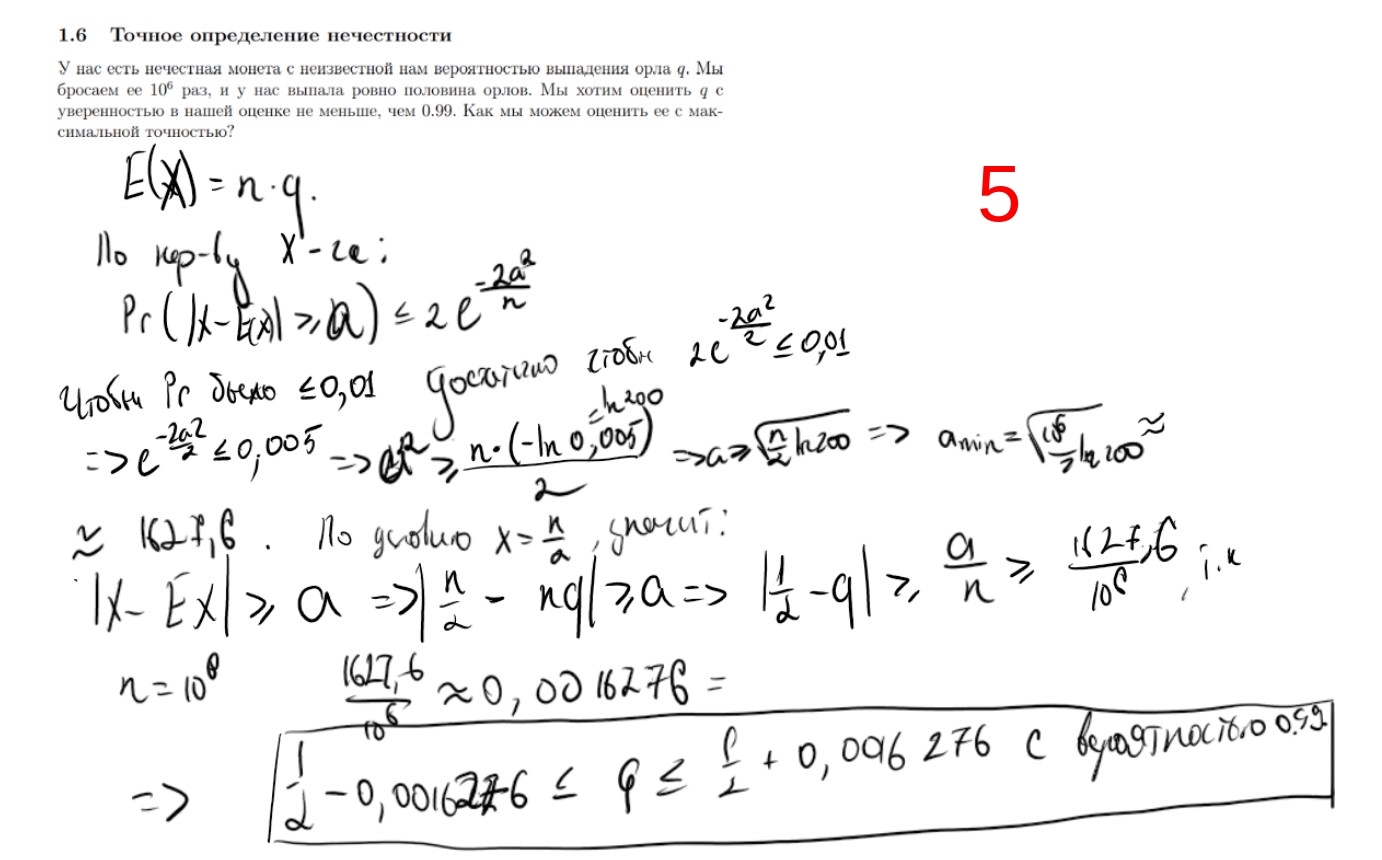 1.6 Точное определение нечестности
У нас есть нечестная монета с неизвестной нам вероятностью выпадения орла q. Мы
бросаем ее 10⁶ раз, и у нас выпала ровно половина орлов. Мы хотим оценить q с
уверенностью в нашей оценке не меньше, чем 0.99. Как мы можем оценить ее с мак-
симальной точностью?
E(X) = n · q.
5
По нер-ву X-га:
Pr(|X-E(x)| ⩾ a) ≤ 2e^{-2a²/n}
Чтобы Pr было ≤0,01 достаточно чтобы 2e^{-2a²/2} ≤ 0,01
=> e^{-2a²/2} ≤ 0,005 => a² ⩾ n·(-ln 0,005)/2 = ln200 => a ⩾ √(n/2 ln200) => a min = √(10⁶/2 ln200) ≈
≈ 1627,6. По условию x = n/2, значит:
|X-EX| ⩾ a => |n/2 - nq| ⩾ a => |1/2 - q| ⩾ a/n ⩾ 1627,6/10⁶, т.к
n = 10⁶ 1627,6/10⁶ ≈ 0,0016276 =
=> 1/2 - 0,0016276 ≤ q ≤ 1/2 + 0,0016 276 с вероятностью 0.99